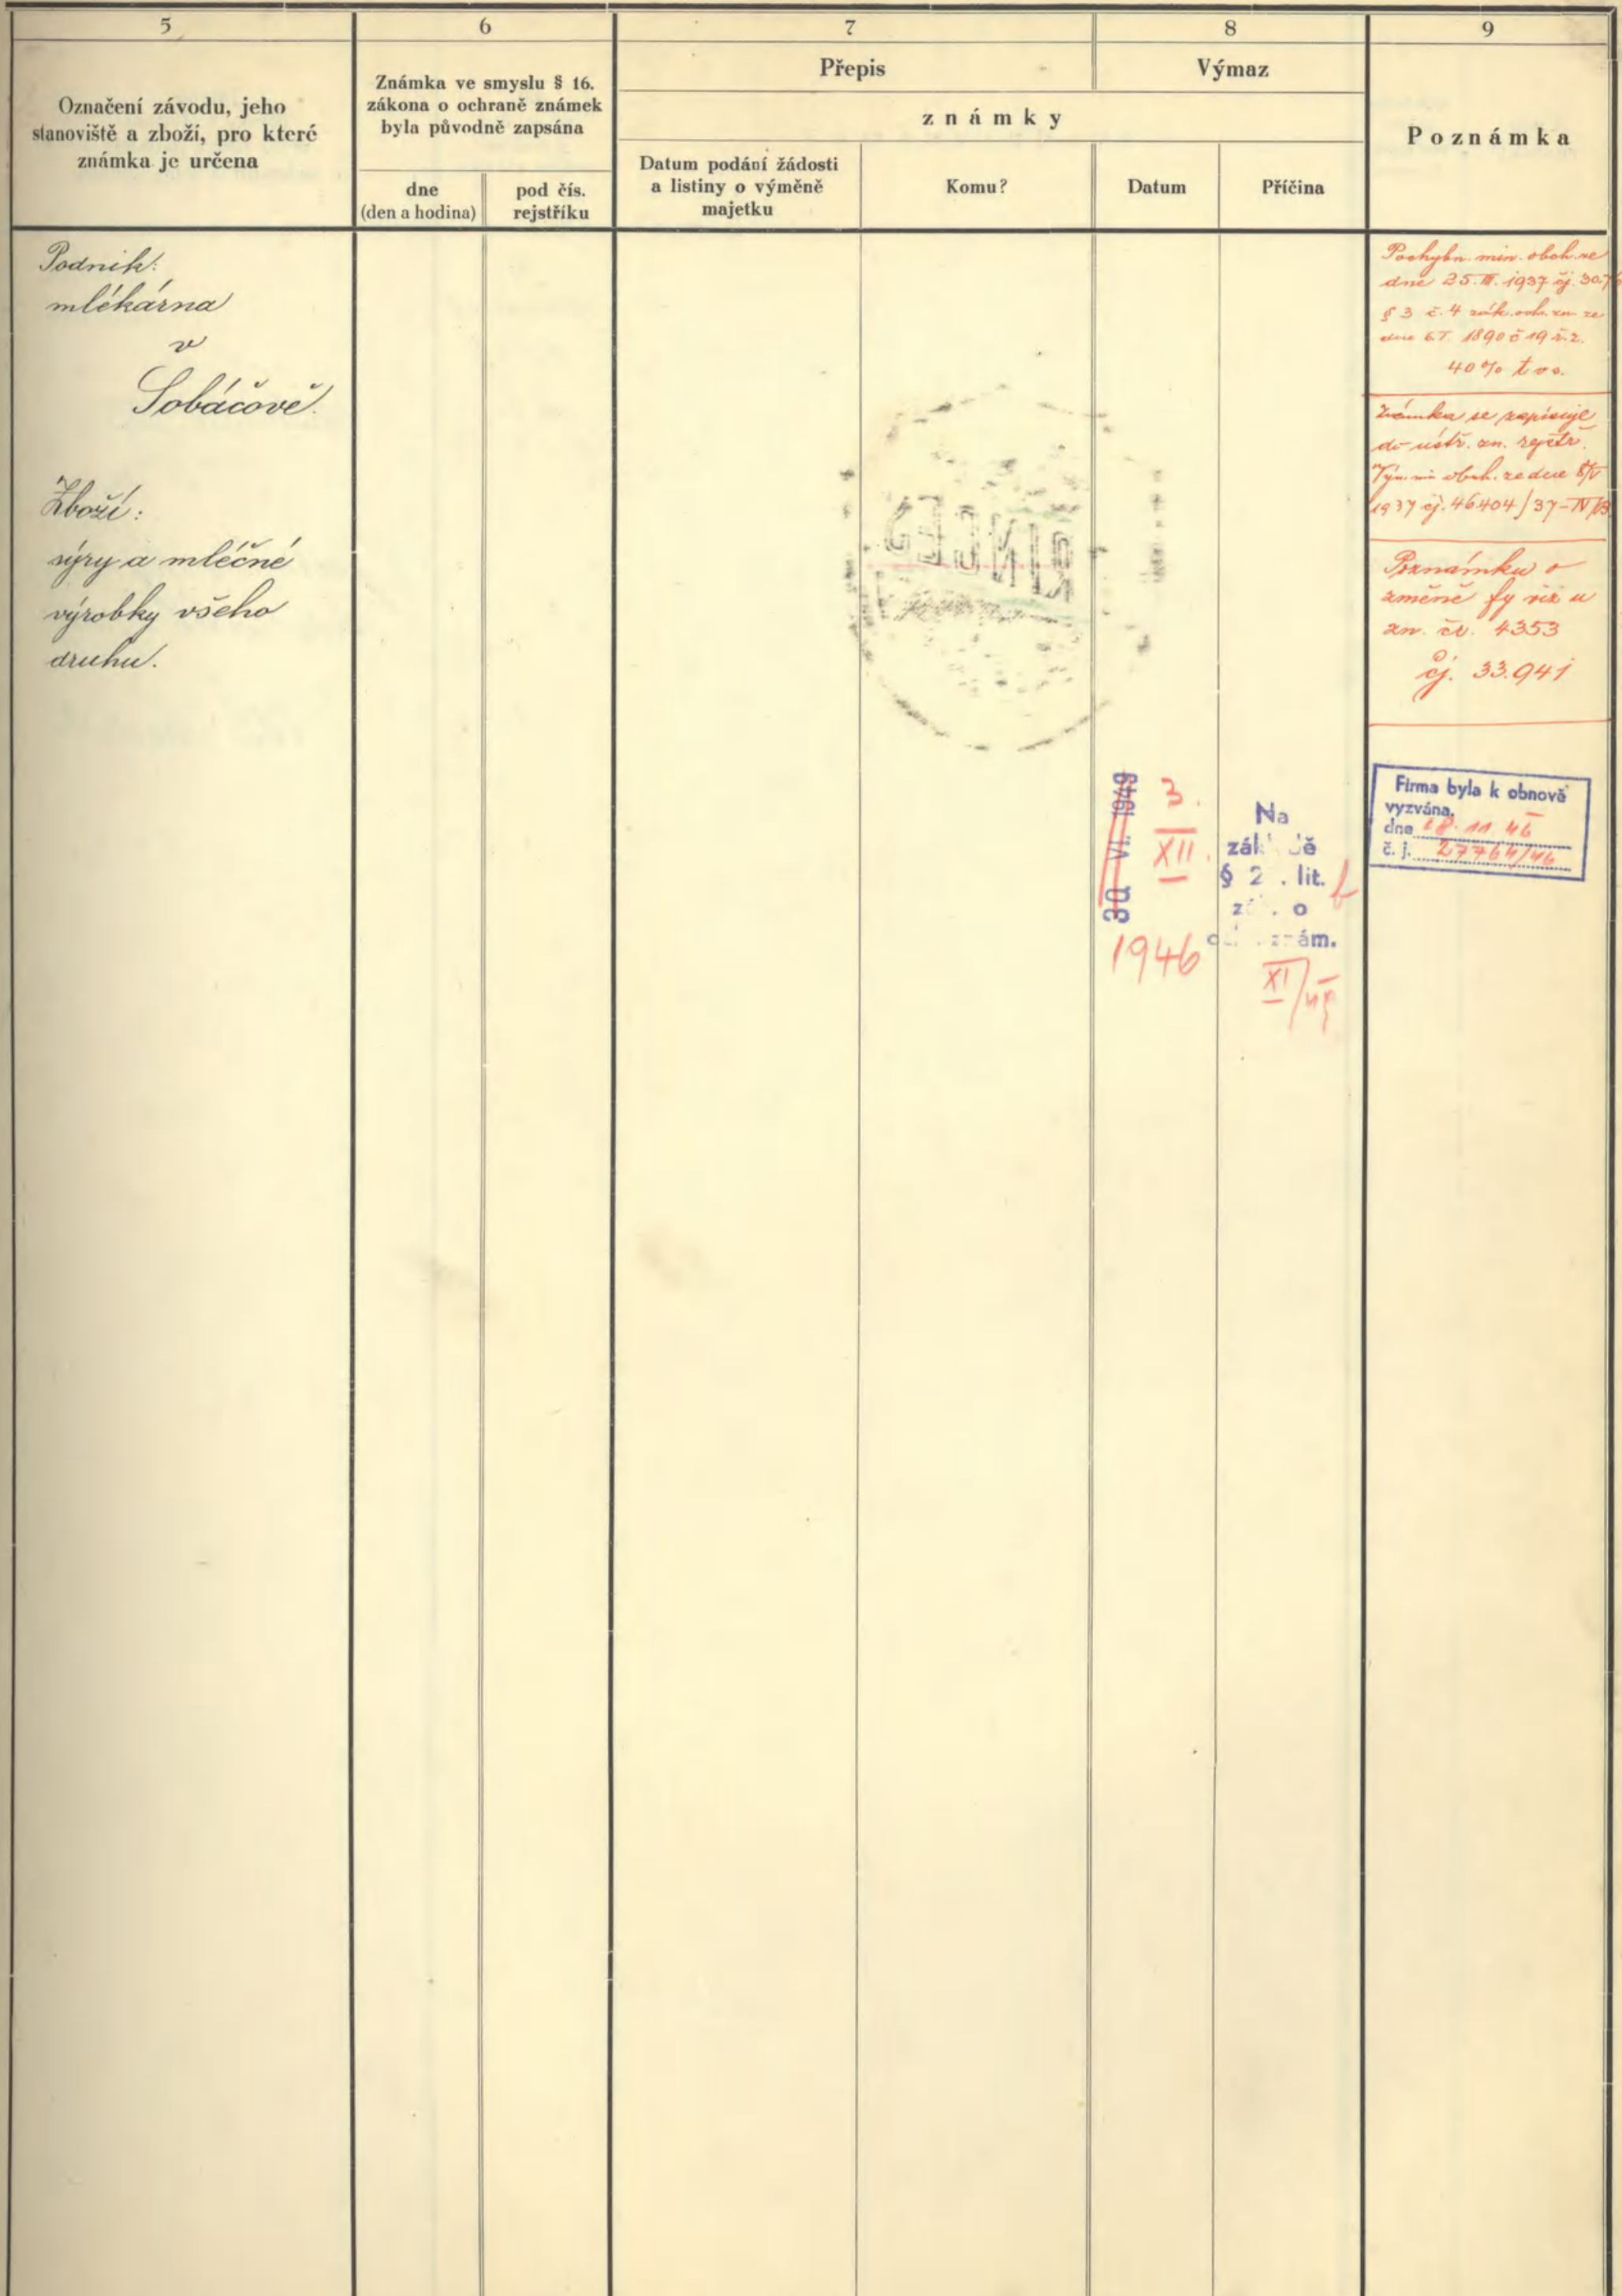 5
6
7
8
9
Označení závodu, jeho
stanoviště a zboží, pro které
známka je určena
Známka ve smyslu § 16.
zákona o ochraně známek
byla původně zapsána
dne
(den a hodina)
pod čís.
rejstříku
Přepis
Výmaz
známky
Datum podání žádosti
a listiny o výměně
majetku
Komu?
Datum
Příčina
Poznámka
Podnik:
mlékárna
v
Sobáčově.
Zboží:
sýry a mléčné
výrobky všeho
druhu.
Pochybn. min. obch. ze
dne 25. III. 1937 čj.
§ 3 č. 4 zák. och. zn. ze
dne 6.I. 1890 č 19 ř.z.
40%
Známka se zapisuje
do ústř. zn. rejstř.
obch. ze dne
1937 čj. 46404/37-IV
Poznámku o
změně fy viz u
zn. čl. 4353
čj. 33.941
30 VI. 1949
3.
XII.
1946
Na
§ 2 . lit.
o
XI
Firma byla k obnově
vyzvána.
dne 18. 11 46
č. j. 27764/46